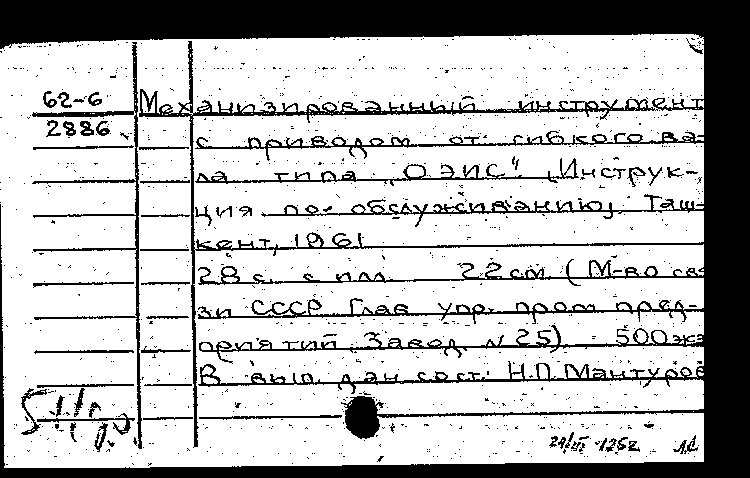 62-6 Механизированный инструмент
2886 с приводом от гибкого ва-
ла типа „ОЭИС" [Инструк-
ция по обслуживанию]. Таш-
кент, 1961
28 с. с илл. 22 см. (М-во свя
зи СССР Глав упр. пром пред-
приятий. Завод N 25). 500 экз
В вып. дан сост.: Н.П. Мантуров
29/III 125г